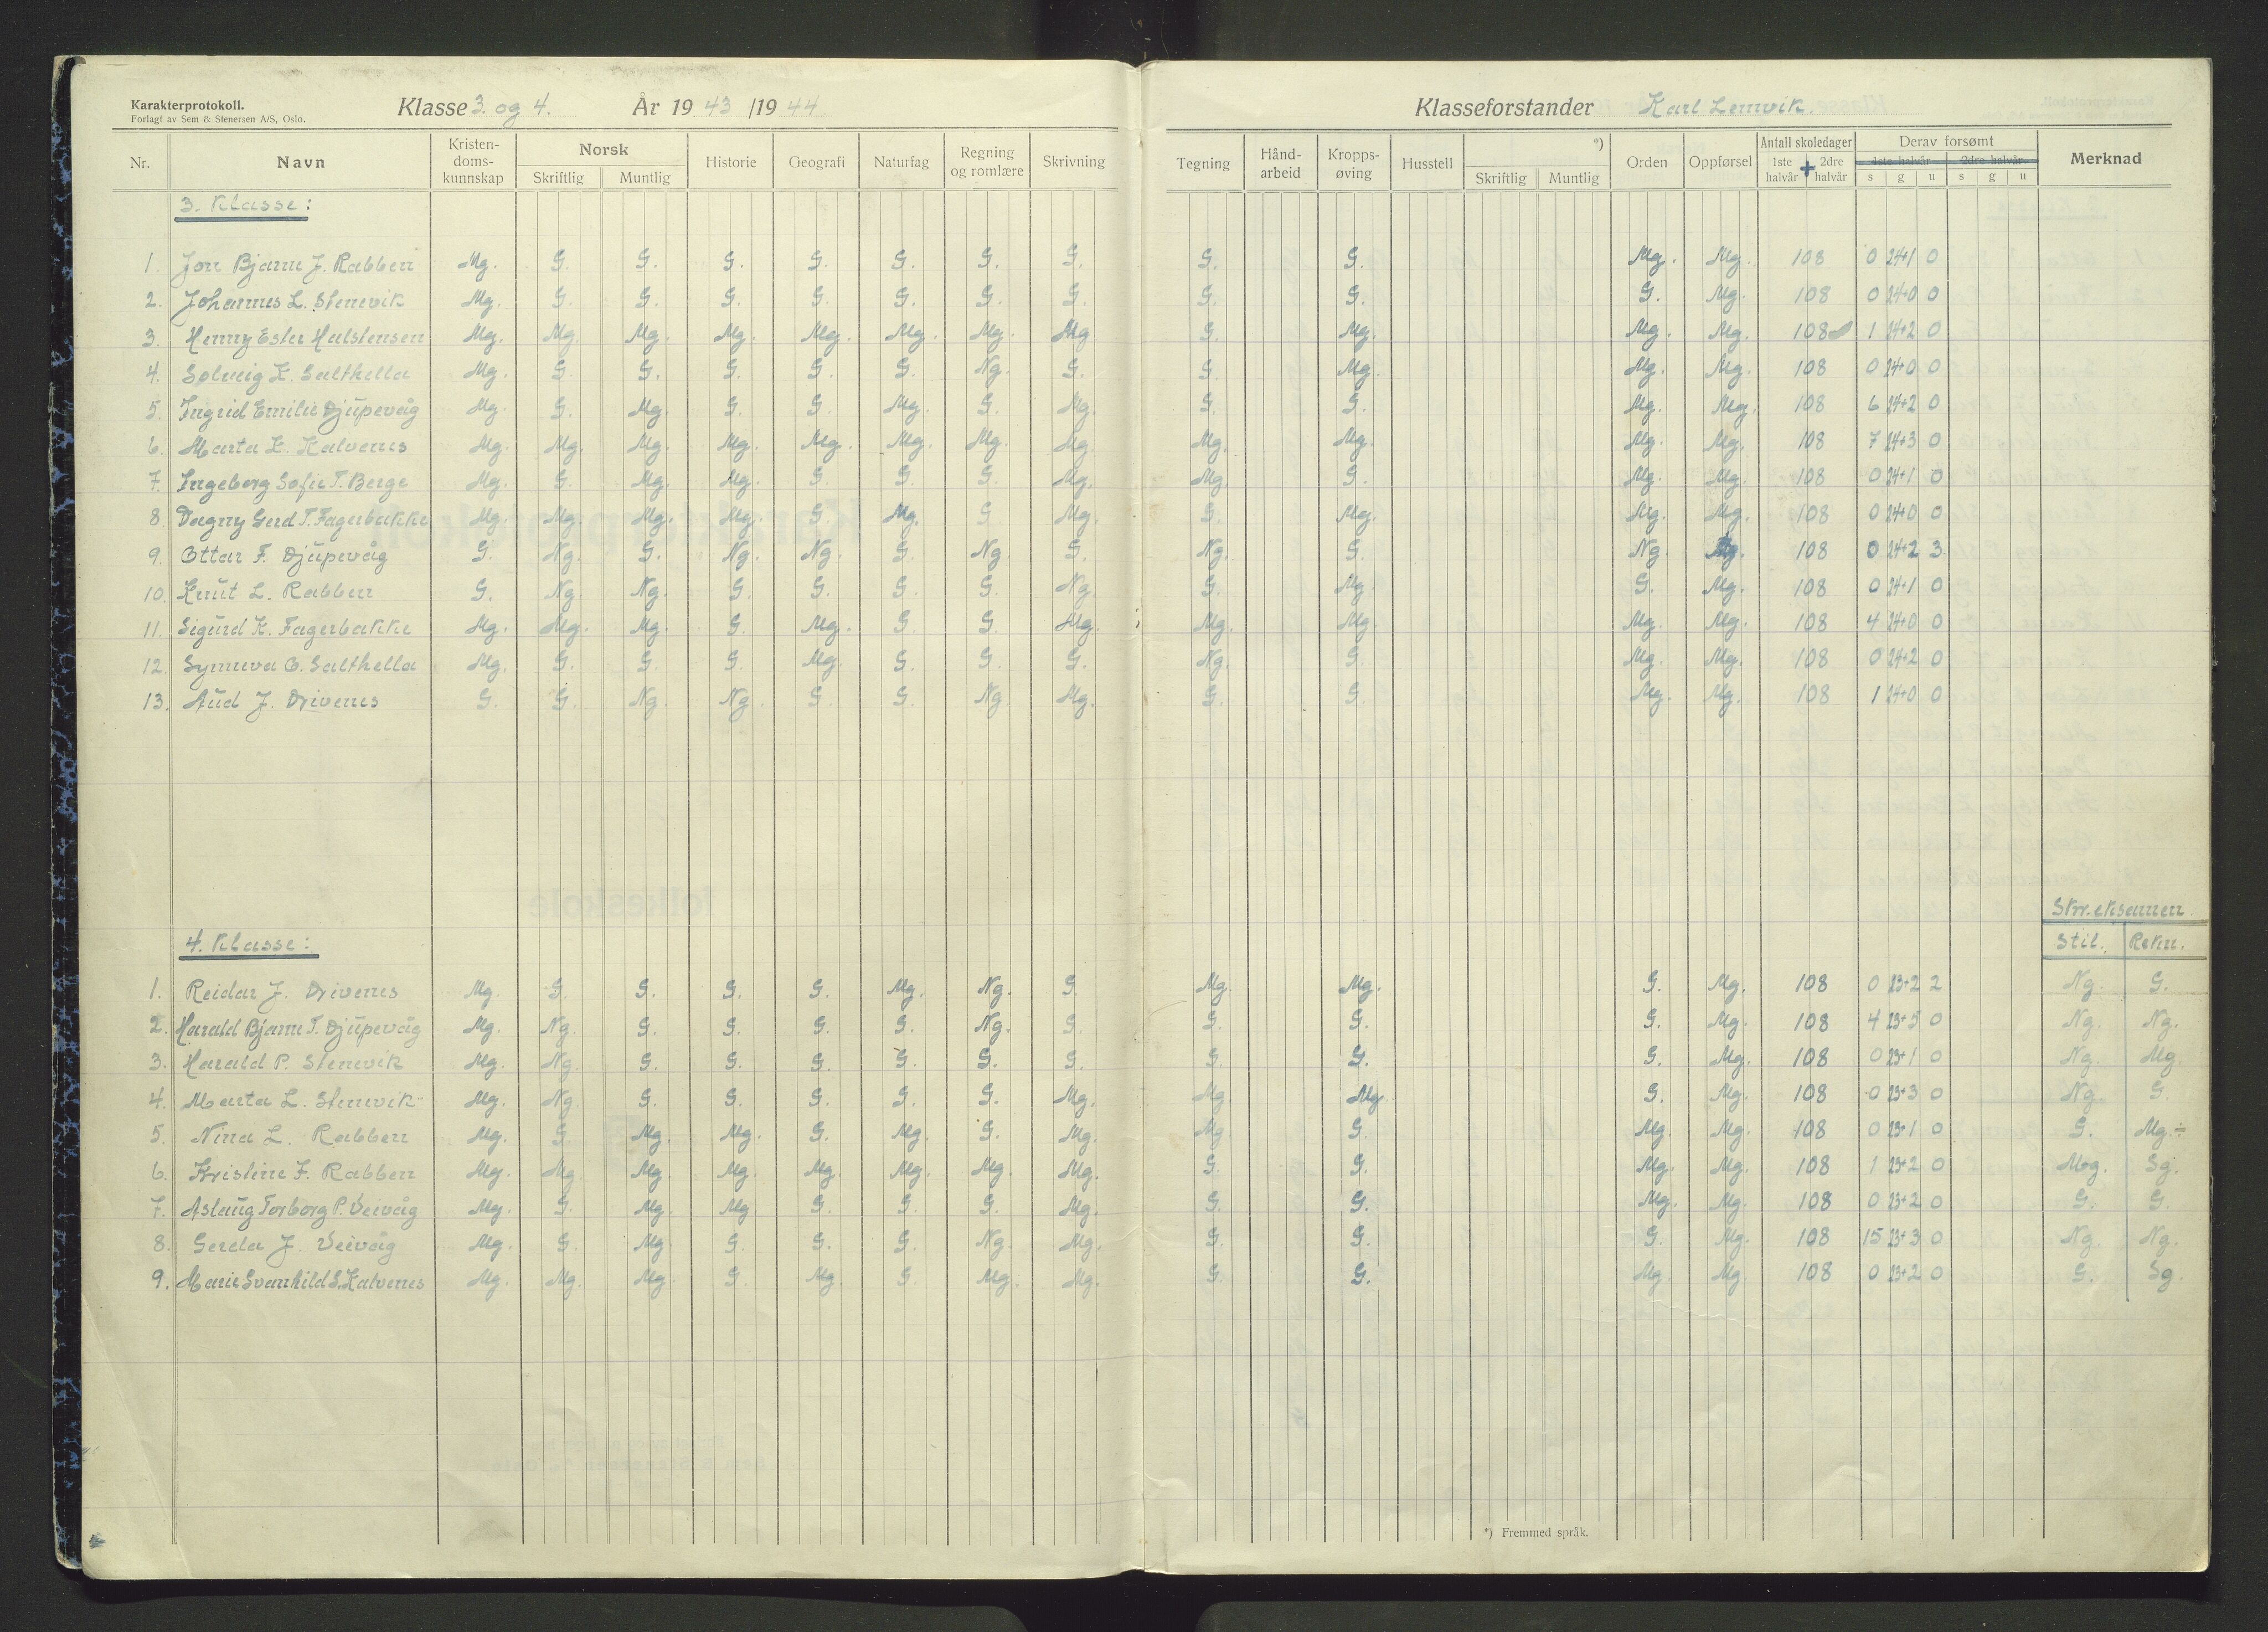 Karakterprotokoll.
Forlagt av Sem & Stenersen A/S, Oslo.
Klasse 3. og 4. År 19 43 /19 44
Klasseforstander Karl Lemvik.
Nr. Navn Kristendoms-kunnskap Norsk Skriftlig Muntlig Historie Geografi Naturfag Regning og romlære Skrivning Tegning Hånd-arbeid Kropps-øving Husstell *) Skriftlig Muntlig Orden Oppførsel Antall skoledager 1ste halvår + 2dre halvår Derav forsømt 1ste halvår 2dre halvår s g u s g u Merknad
3. Klasse:
1. Jon Bjarne J. Rabben Mg. G. G. G. G. G. G. G. G. G. Mg. Mg. 108 0 24+1 0
2. Johannes L. Stenevik Mg. G. G. G. G. G. G. G. G. G. G. Mg. 108 0 24+0 0
3. Henny Ester Halstensen Mg. Mg. Mg. Mg. Mg. Mg. Mg. Mg G. Mg. Mg. Mg. 108 1 24+2 0
4. Solveig K. Salthella Mg. G. G. G. G. G. Ng. G. G. Mg. Mg. Mg. 108 0 24+0 0
5. Ingrid Emilie Djupevåg Mg. G. Mg. G. G. Mg. G. Mg. G. G. Mg. Mg. 108 6 24+2 0
6. Marta K. Kalvenes Mg. Mg. Mg. Mg. Mg. Mg. Mg. Mg. Mg. Mg. Mg. Mg. 108 7 24+3 0
7. Ingeborg Sofie T. Berge Mg. G. Mg. Mg. G. G. G. Mg. Mg. G. Mg. Mg. 108 0 24+1 0
8. Dagny Gerd T. Fagerbakke Mg. Mg. Mg. Mg. G. Mg. G. Mg. G. Mg. Mg. Mg. 108 0 24+0 0
9. Ottar F. Djupevåg G. Ng. G. Ng. Ng. G. Ng. G. Ng. G. Ng. 108 0 24+2 3
10. Knut L. Rabben G. Ng. Ng. G. G. G. G. Ng. G. Mg. G. Mg. 108 0 24+1 0
11. Sigurd K. Fagerbakke Mg. Mg. Mg. G. Mg. G. G. Mg. Mg. Mg. Mg. Mg. 108 4 24+0 0
12. Synneva O. Salthella Mg. G. G. G. Mg. G. G. G. Ng. G. Mg. Mg. 108 0 24+2 0
13. Aud J. Drivenes G. G. Ng. Ng. G. G. Ng. Mg. G. G. Mg. Mg. 108 1 24+0 0
Skr. eksamen.
4. Klasse: Stil. Rekn.
1. Reidar J. Drivenes Mg. G. G. G. G. Mg. Ng. G. Mg. Mg. G. Mg. 108 0 23+2 2 Ng. G.
2. Harald Bjarne T. Djupevåg Mg. Ng. G. G. G. G. Ng. G. G. G. G. Mg. 108 4 23+5 0 Ng. Ng.
3. Harald P. Stenevik Mg. Ng. G. G. G. G. G. G. G. G. G. Mg. 108 0 23+1 0 Ng. Mg.
4. Marta L. Stenevik Mg. Ng. G. G. G. G. G. Mg. Mg. Mg. G. Mg. 108 0 23+3 0 Ng. G.
5. Nina L. Rabben Mg. G. Mg. Mg. G. Mg. G. Mg. Mg. G. Mg. Mg. 108 0 23+1 0 G. Mg.÷
6. Kristine F. Rabben Mg. Mg. Mg. Mg. Mg. Mg. Mg. Mg. G. G. Mg. Mg. 108 1 23+2 0 Mg. Sg.
7. Aslaug Torborg P. Veivåg Mg. G. Mg. Mg. G. G. G. Mg. G. G. Mg. Mg. 108 0 23+2 0 G. G.
8. Gerda J. Veivåg Mg. G. Mg. G. G. G. Ng. Mg. G. G. G. Mg. 108 15 23+3 0 Ng. Ng.
9. Marie Svanhild S. Kalvenes Mg. Mg. Mg. G. Mg. G. Mg. Mg. G. G. Mg. Mg. 108 0 23+2 0 G. Sg.
*) Fremmed språk.